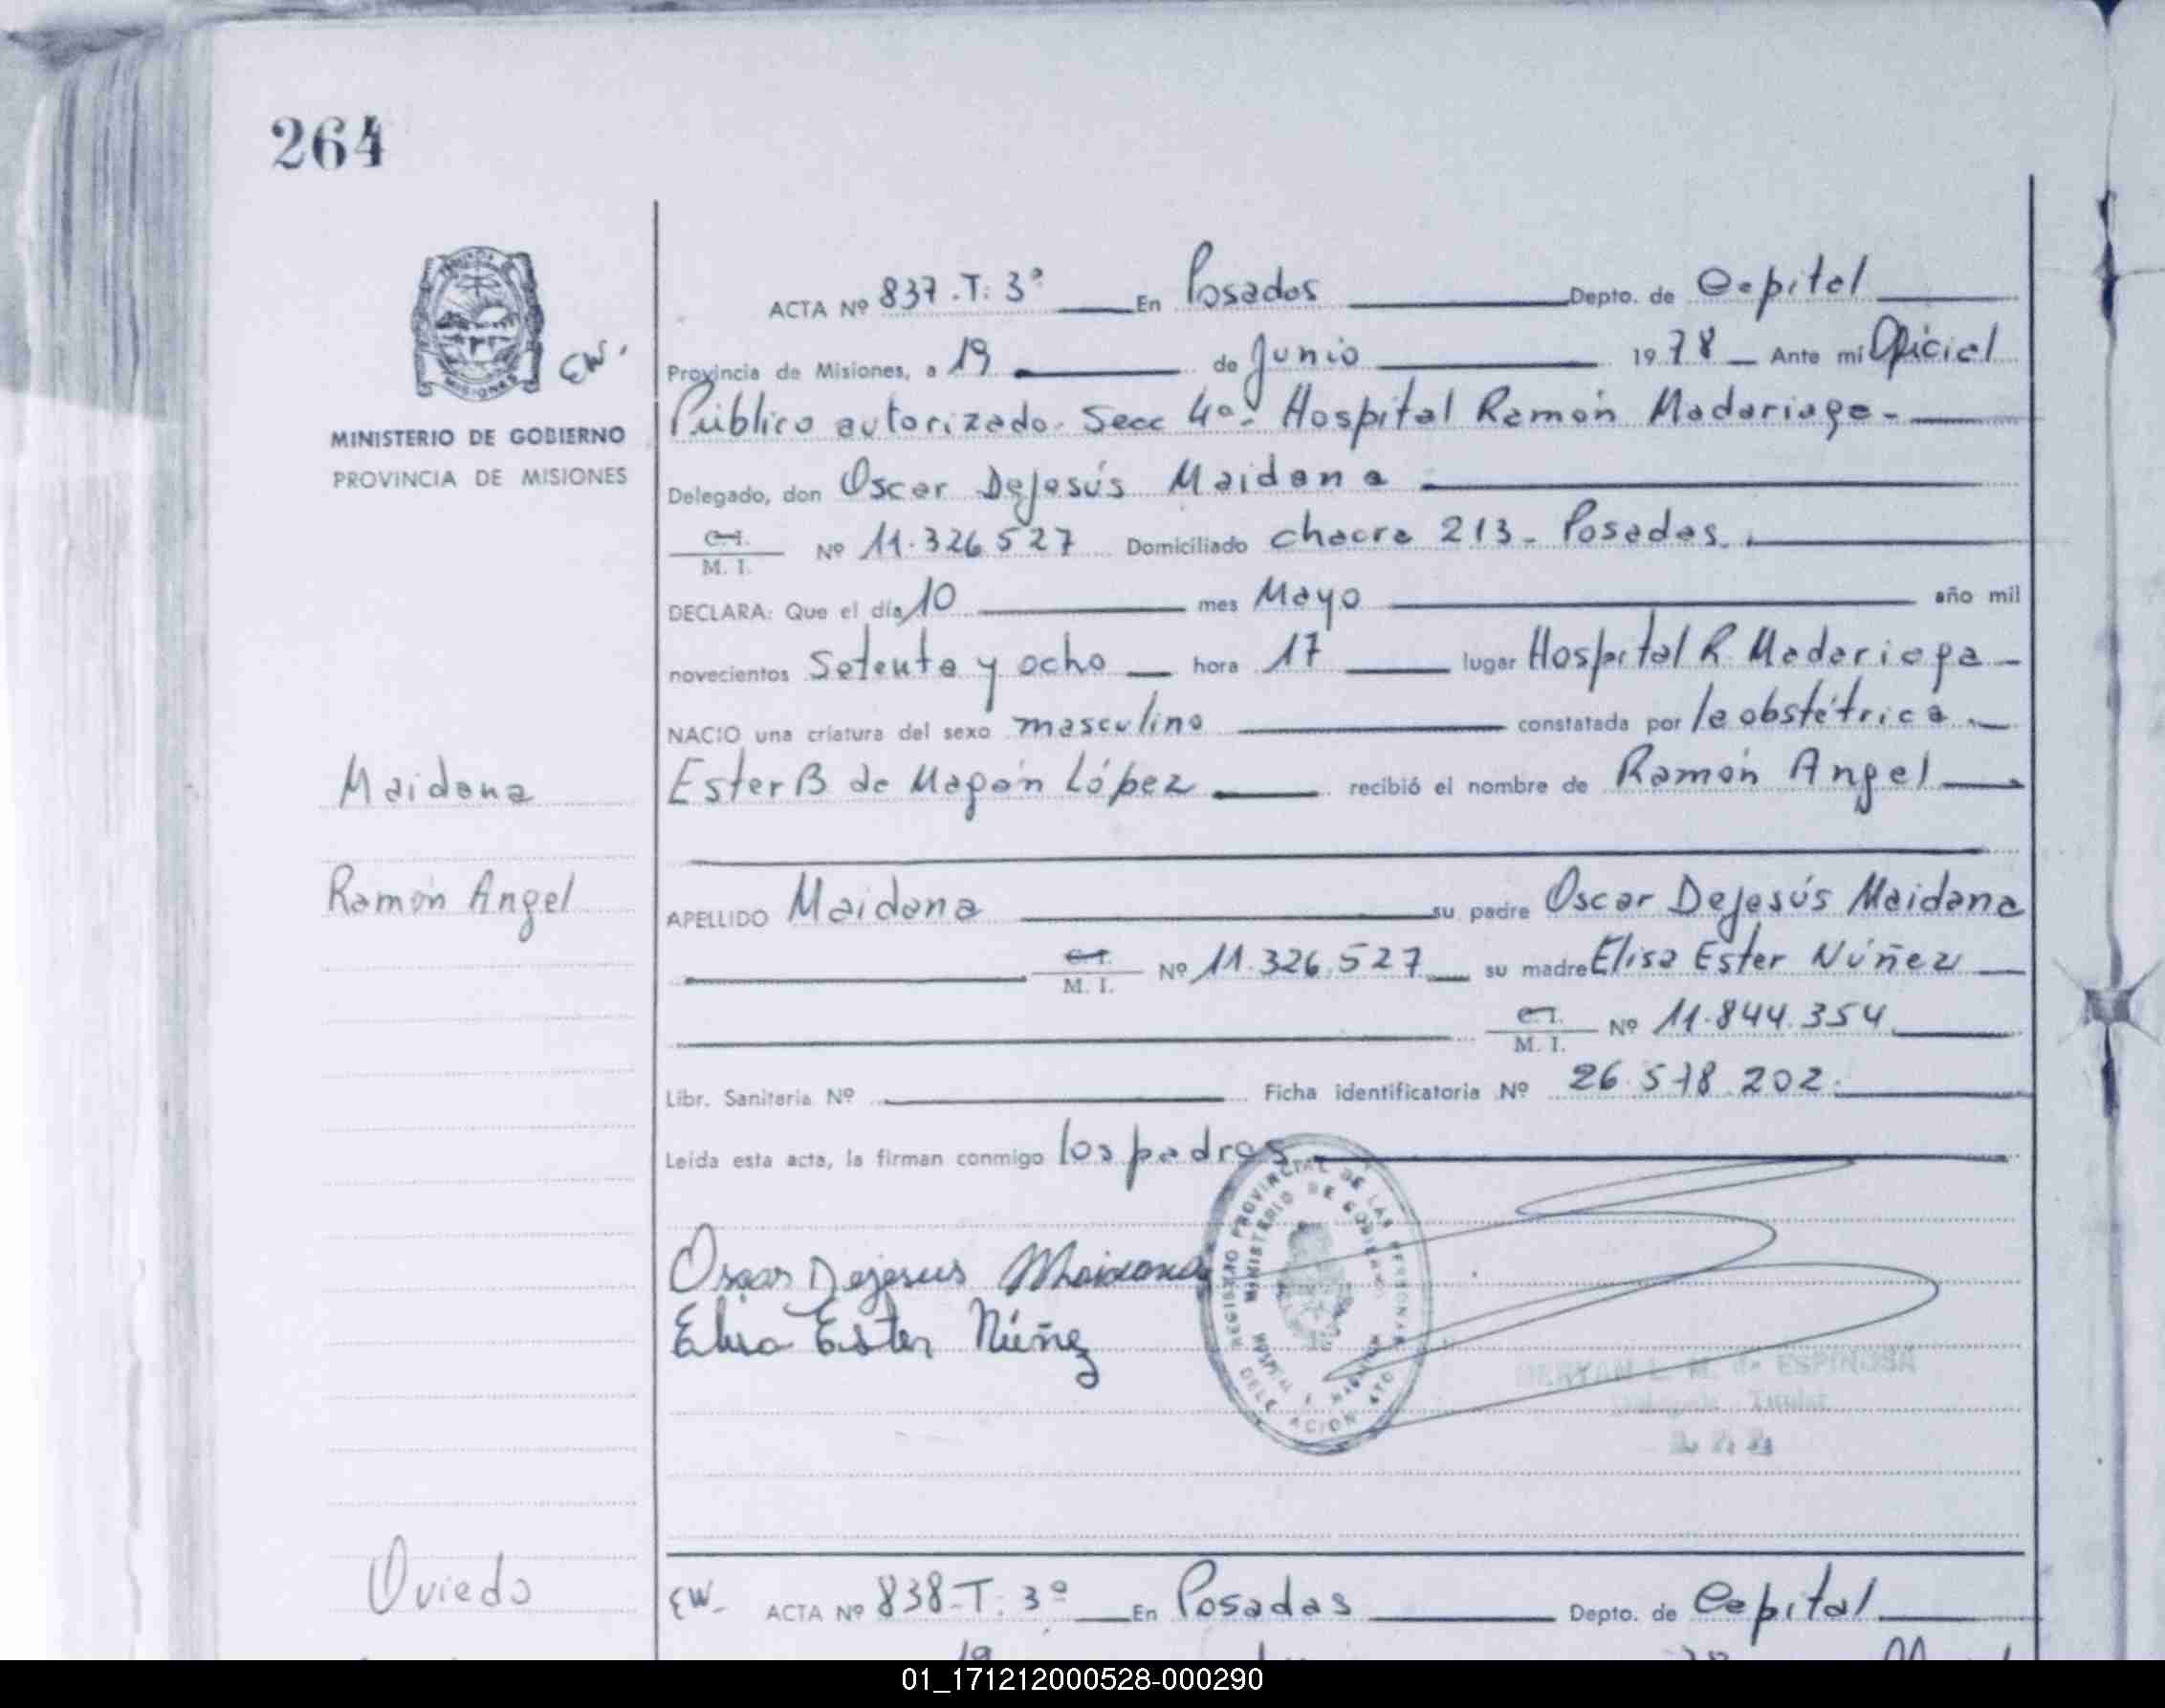 264
EW.
MINISTERIO DE GOBIERNO
PROVINCIA DE MISIONES
ACTA Nº 837.T: 3º En Posadas Depto. de Capital
Provincia de Misiones, a 19 de Junio 1978 Ante mi Oficial
Público autorizado. Secc 4º- Hospital Ramón Madariaga-
Delegado, don Oscar DeJesús Maidana
C.I.
M. I. Nº 11.326.527 Domiciliado chacra 213- Posadas.
DECLARA: Que el día 10 mes Mayo año mil
novecientos Setenta y ocho hora 17 lugar Hospital R Madariaga
NACIO una criatura del sexo masculino constatada por la obstétrica
Maidana
Ester B de Magán López recibió el nombre de Ramón Angel
Ramón Angel
APELLIDO Maidana su padre Oscar DeJesús Maidana
C.I.
M. I. Nº 11.326.527 su madre Elisa Ester Núñez
C.I.
M. I. Nº 11.844.354
Libr. Sanitaria Nº Ficha identificatoria Nº 26.578.202.
Leída esta acta, la firman conmigo los padres
REGISTRO PROVINCIAL DE LAS PERSONAS
MINISTERIO DE GOBIERNO
DELEGACION
Oscar Dejesus Maidana
Elisa Ester Núñez
L. M. de ESPINOSA
Titular
Oviedo
EW- ACTA Nº 838-T: 3º En Posadas Depto. de Capital
19
01_171212000528-000290